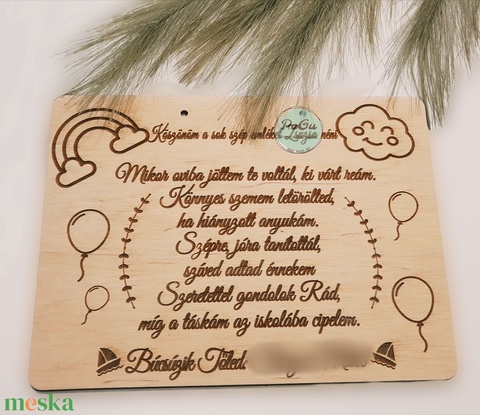 Köszönöm a sok szép emléket Zsuzsa néni
PaGu
Mikor oviba jöttem te voltál, ki várt reám.
Könnyes szemem letörölted,
ha hiányzott anyukám.
Szépre, jóra tanítottál,
szíved adtad énnekem
Szeretettel gondolok Rád,
míg a táskám az iskolába cipelem.
Búcsúzik Tőled:
meska